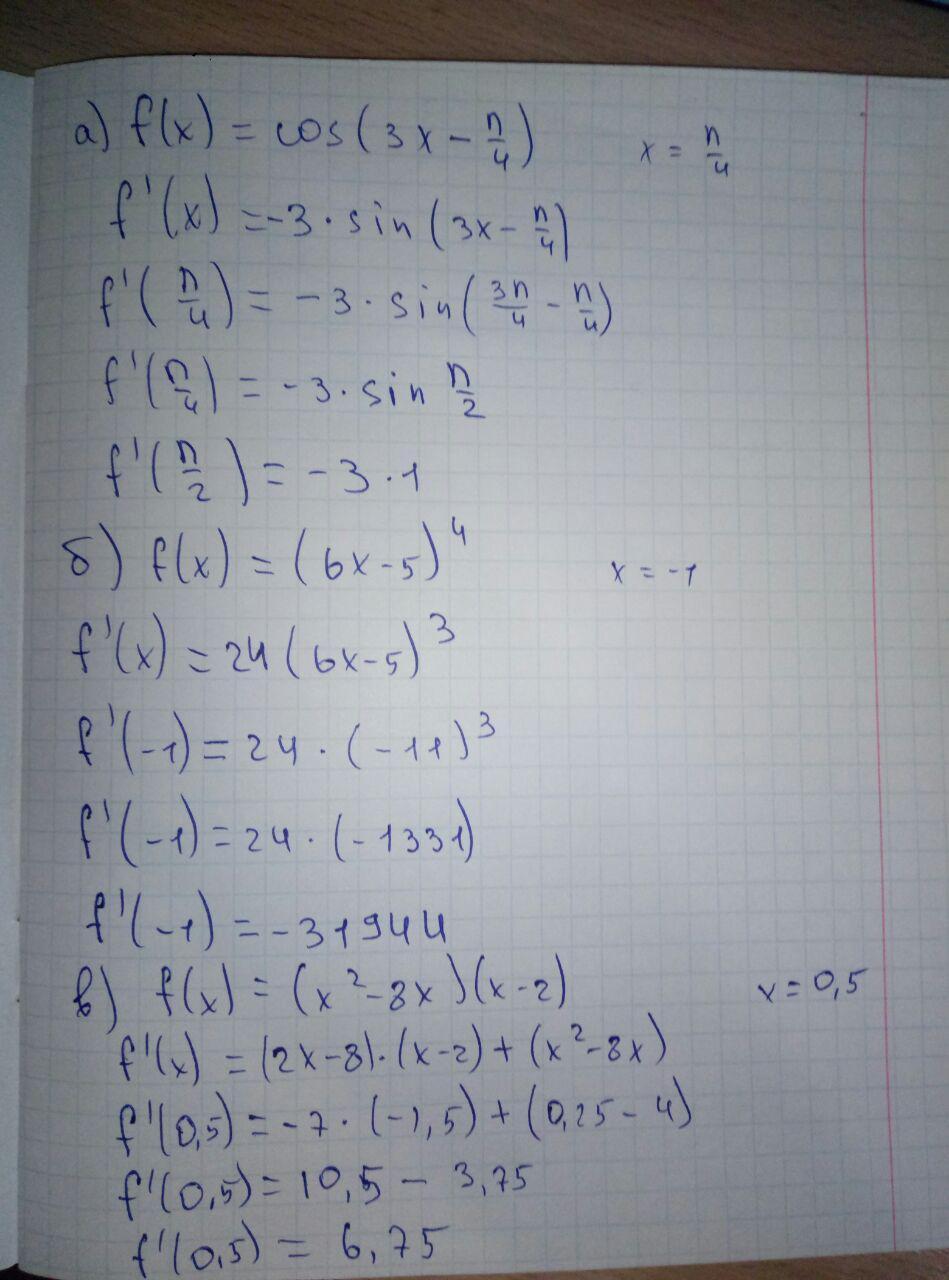 а) f(x) = cos(3x - π/4) x = π/4
f'(x) = -3 · sin(3x - π/4)
f'(π/4) = -3 · sin(3π/4 - π/4)
f'(π/4) = -3 · sin π/2
f'(π/2) = -3 · 1
б) f(x) = (6x-5)⁴ x = -1
f'(x) = 24(6x-5)³
f'(-1) = 24 · (-11)³
f'(-1) = 24 · (-1331)
f'(-1) = -31944
в) f(x) = (x²-8x)(x-2) x = 0,5
f'(x) = (2x-8)·(x-2) + (x²-8x)
f'(0,5) = -7 · (-1,5) + (0,25 - 4)
f'(0,5) = 10,5 - 3,75
f'(0,5) = 6,75